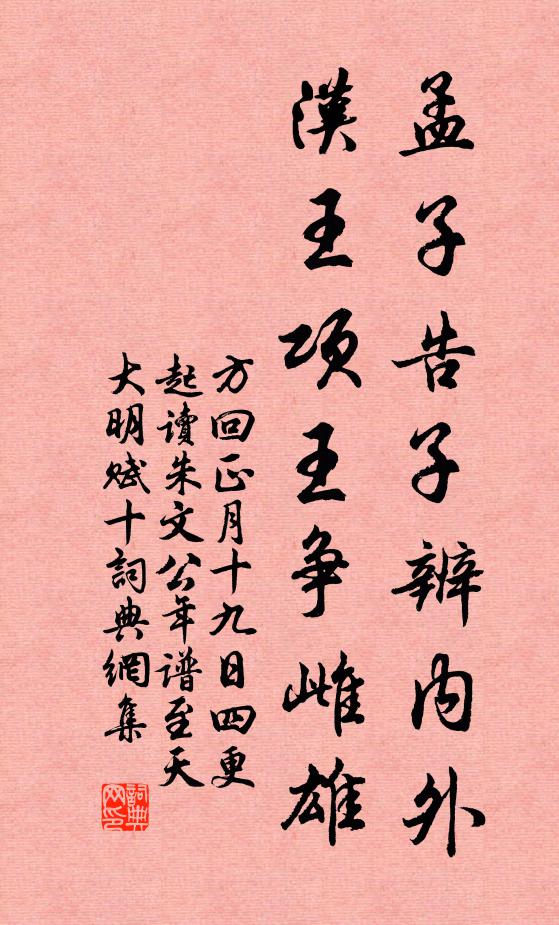 孟子告子辨内外
漢王項王争雌雄
方回正月十九日四更
起讀朱文公年谱至天
大明赋十詞典網集
詞典网印